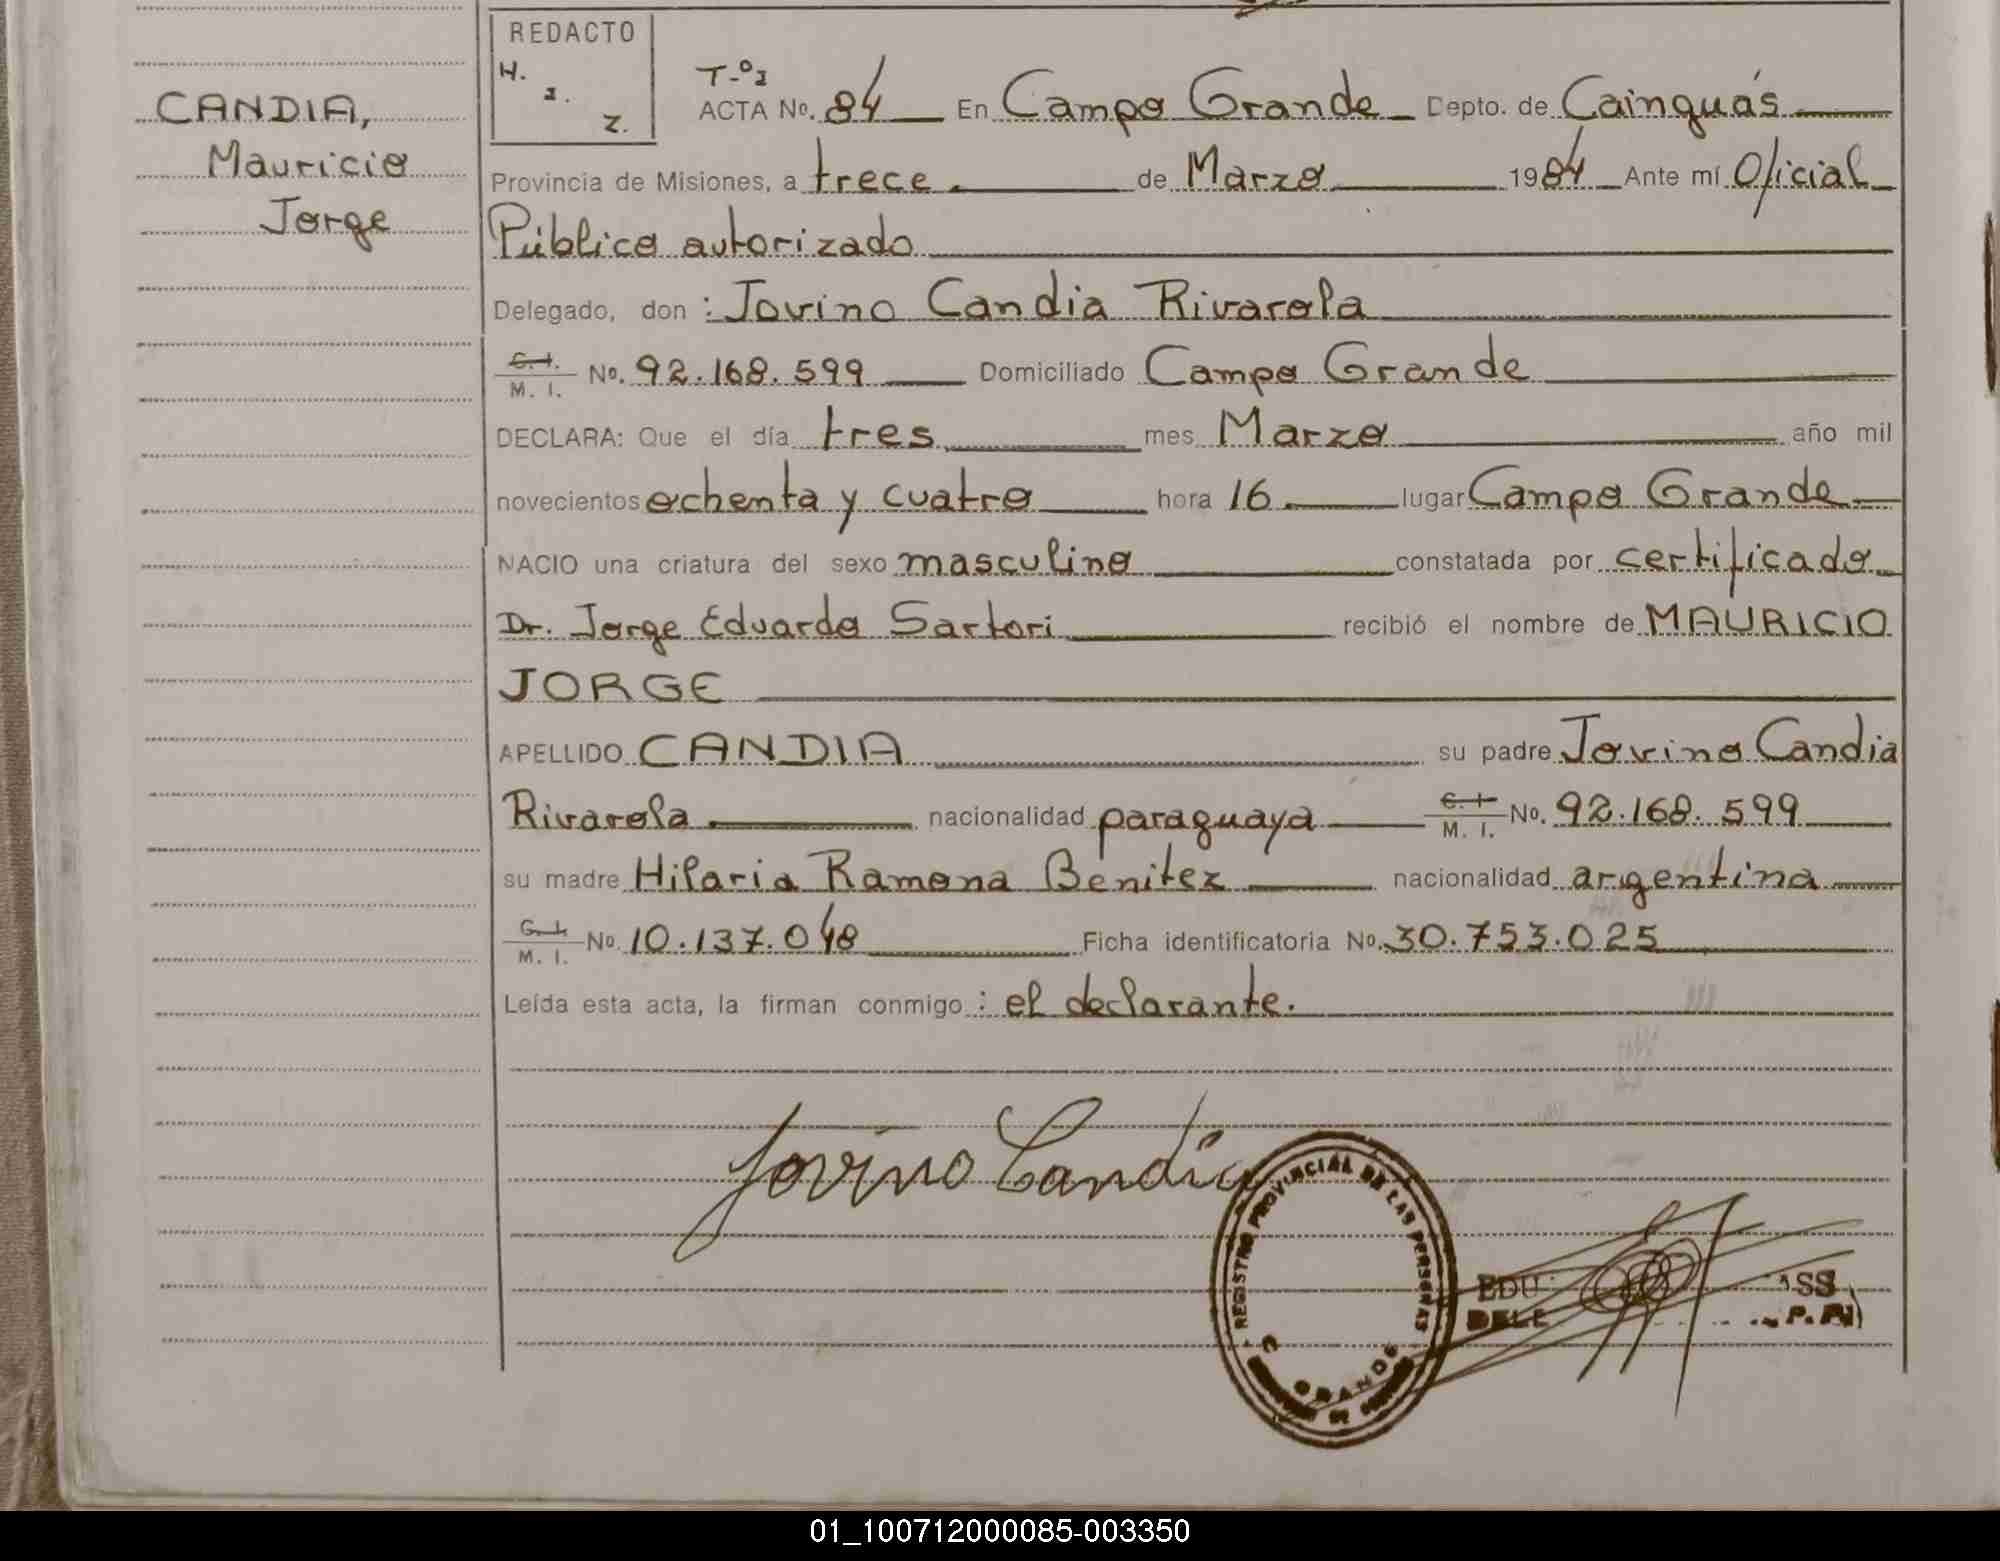 REDACTO
H. I. Z.
CANDIA,
Mauricio
Jorge
T-º1
ACTA No. 84 En Campo Grande Depto. de Cainguás
Provincia de Misiones, a trece de Marzo 1984 Ante mí Oficial
Público autorizado
Delegado, don : Jovino Candia Rivarola
C. I. M. I. No. 92.168.599 Domiciliado Campo Grande
DECLARA: Que el día tres mes Marzo año mil
novecientos ochenta y cuatro hora 16 lugar Campo Grande
NACIO una criatura del sexo masculino constatada por certificado
Dr. Jorge Eduardo Sartori recibió el nombre de MAURICIO
JORGE
APELLIDO CANDIA su padre Jovino Candia
Rivarola nacionalidad paraguaya C. I. M. I. No. 92.168.599
su madre Hilaria Ramona Benitez nacionalidad argentina
C. I. M. I. No. 10.137.048 Ficha identificatoria No. 30.753.025
Leída esta acta, la firman conmigo : el declarante.
Jovino Candia
REGISTRO PROVINCIAL DE LAS PERSONAS
GRANDE
01_100712000085-003350